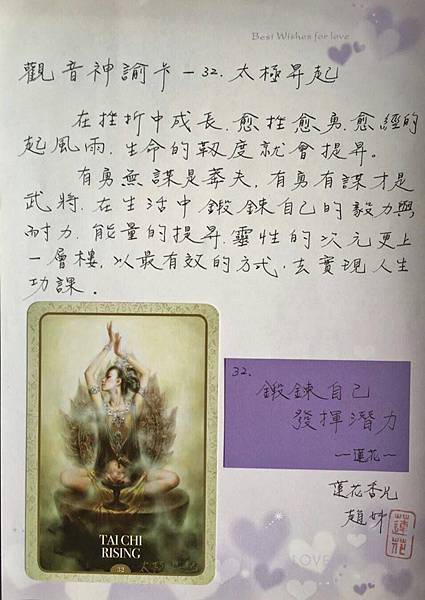 Best Wishes for love
觀音神諭卡－32. 太極昇起
在挫折中成長，愈挫愈勇，愈經的
起風雨，生命的韌度就會提昇。
有勇無謀是莽夫，有勇有謀才是
武將，在生活中鍛鍊自己的毅力與
耐力，能量的提昇，靈性的次元更上
一層樓，以最有效的方式，去實現人生
功課。
32.
鍛鍊自己
發揮潛力
－蓮花－
蓮花香兒
TAI CHI
RISING
32
LOVE